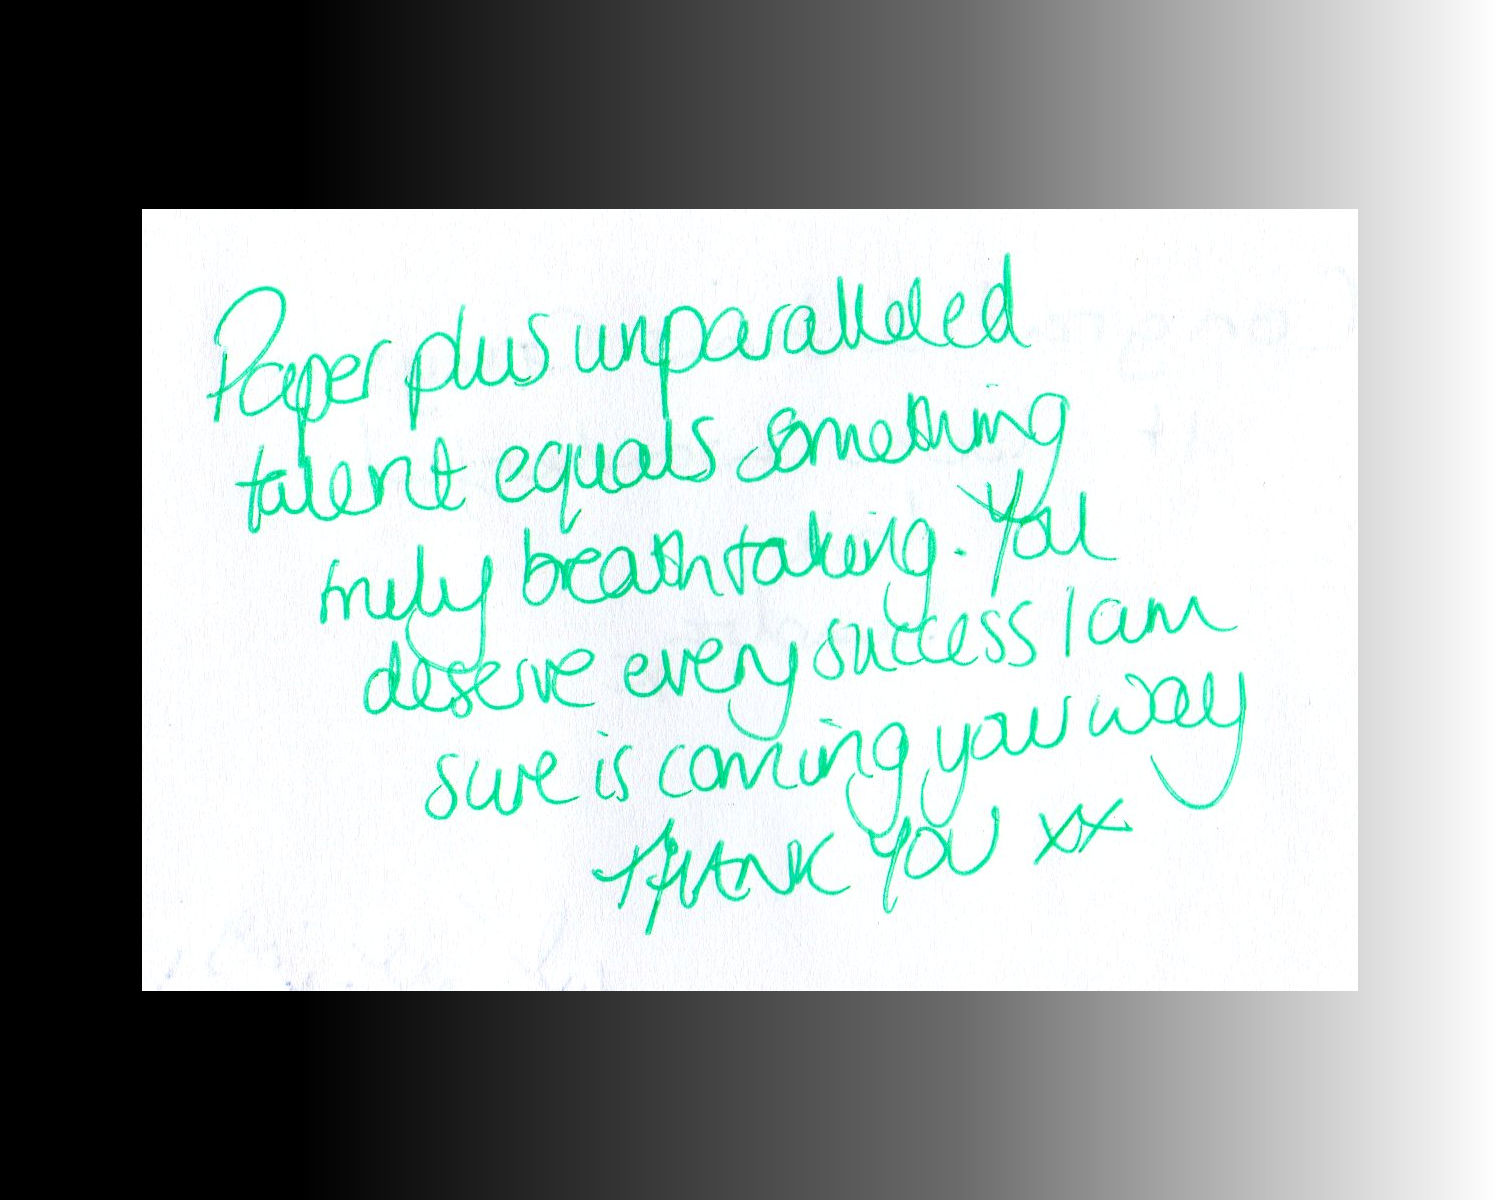 Paper plus unparalleled
talent equals something
truly breathtaking. You
deserve every success I am
sure is coming your way
THANK YOU xx